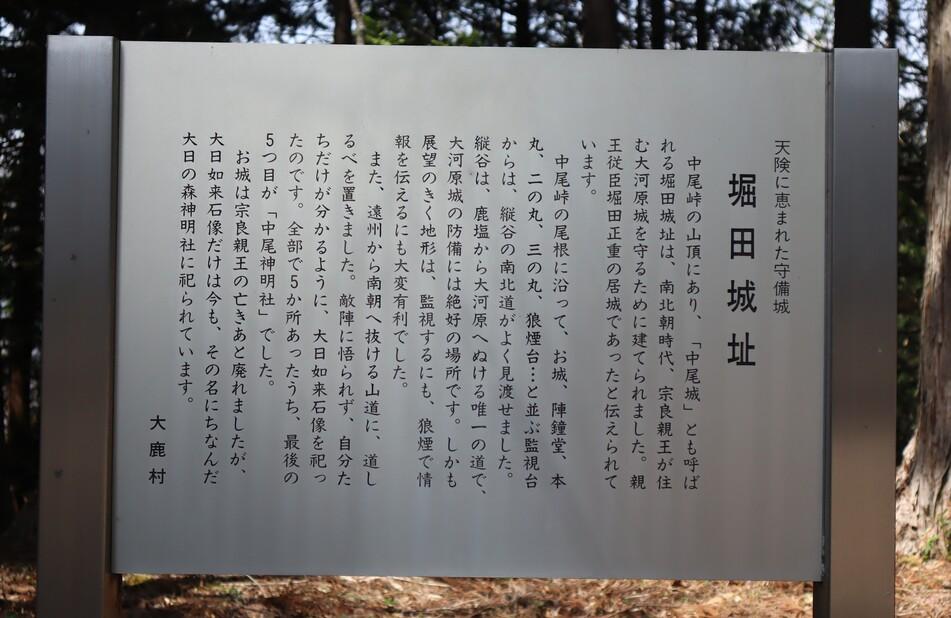 天険に恵まれた守備城
堀田城址
中尾峠の山頂にあり、「中尾城」とも呼ば
れる堀田城址は、南北朝時代、宗良親王が住
む大河原城を守るために建てられました。親
王従臣堀田正重の居城であったと伝えられて
います。
中尾峠の尾根に沿って、お城、陣鐘堂、本
丸、二の丸、三の丸、狼煙台…と並ぶ監視台
からは、縦谷の南北道がよく見渡せました。
縦谷は、鹿塩から大河原へぬける唯一の道で、
大河原城の防備には絶好の場所です。しかも
展望のきく地形は、監視するにも、狼煙で情
報を伝えるにも大変有利でした。
また、遠州から南朝へ抜ける山道に、道し
るべを置きました。敵陣に悟られず、自分た
ちだけが分かるように、大日如来石像を祀っ
たのです。全部で5か所あったうち、最後の
5つ目が「中尾神明社」でした。
お城は宗良親王の亡きあと廃れましたが、
大日如来石像だけは今も、その名にちなんだ
大日の森神明社に祀られています。
大鹿村